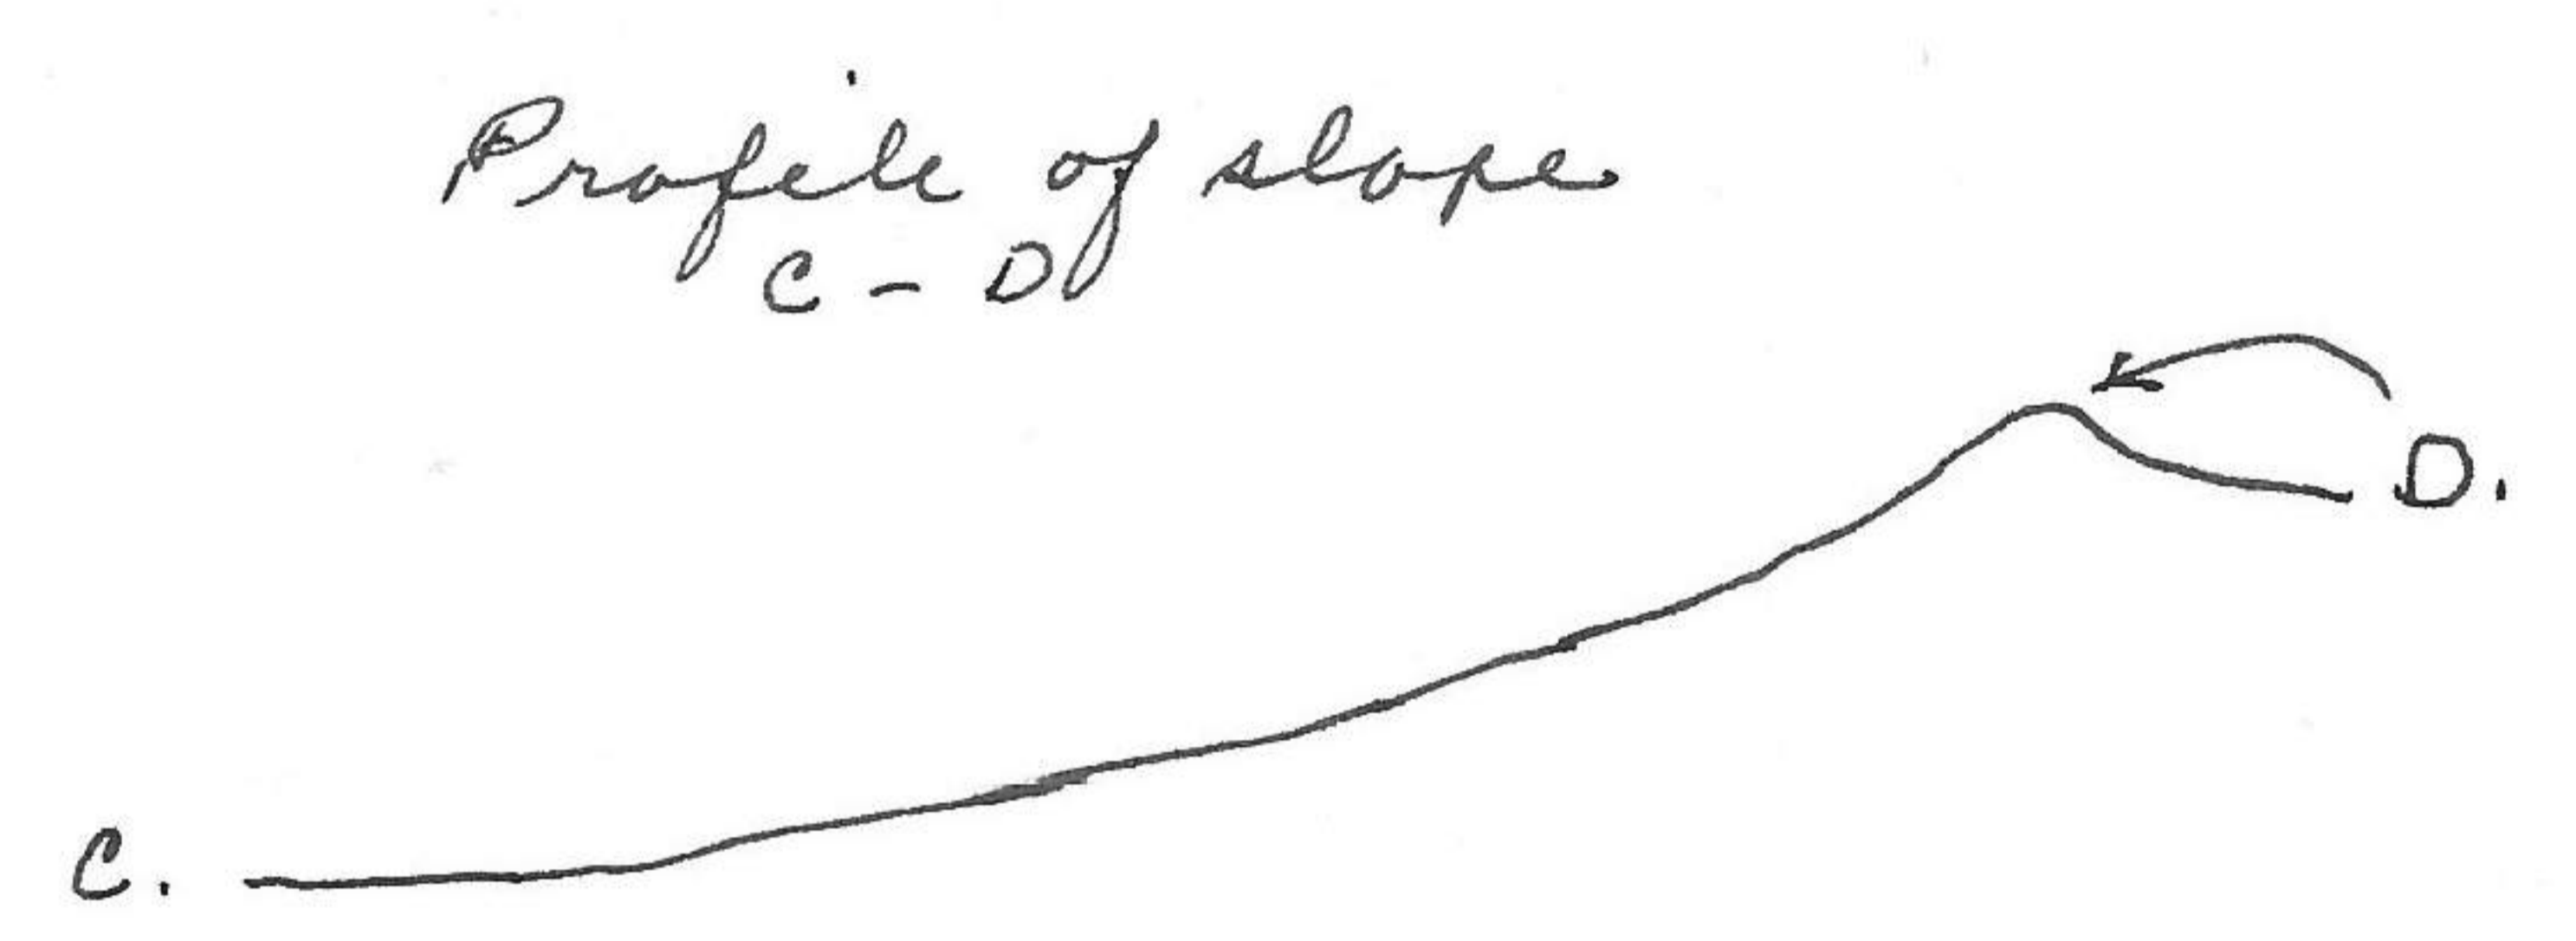 Profile of slope
C - D
D.
C.